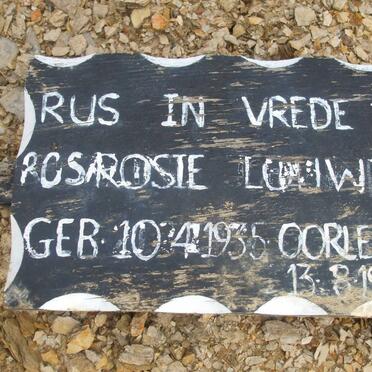 RUS IN VREDE
ROSIE
GEB 10.4.1935 OORLE
13.8.19